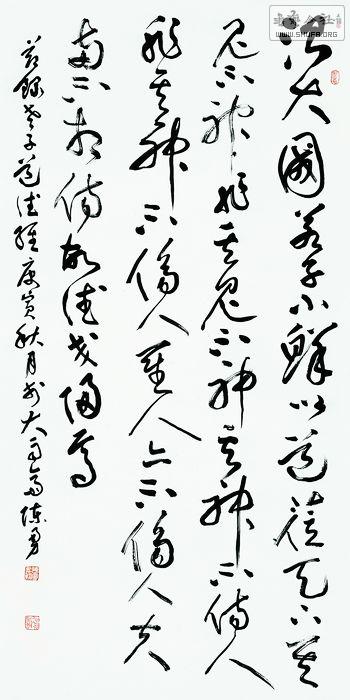 治大國若烹小鮮以道蒞天下其
鬼不神非其鬼不神其神不傷人
非其神不傷人聖人亦不傷人夫
兩不相傷故德交歸焉
錄老子道德經庚寅秋月於大齋陳勇